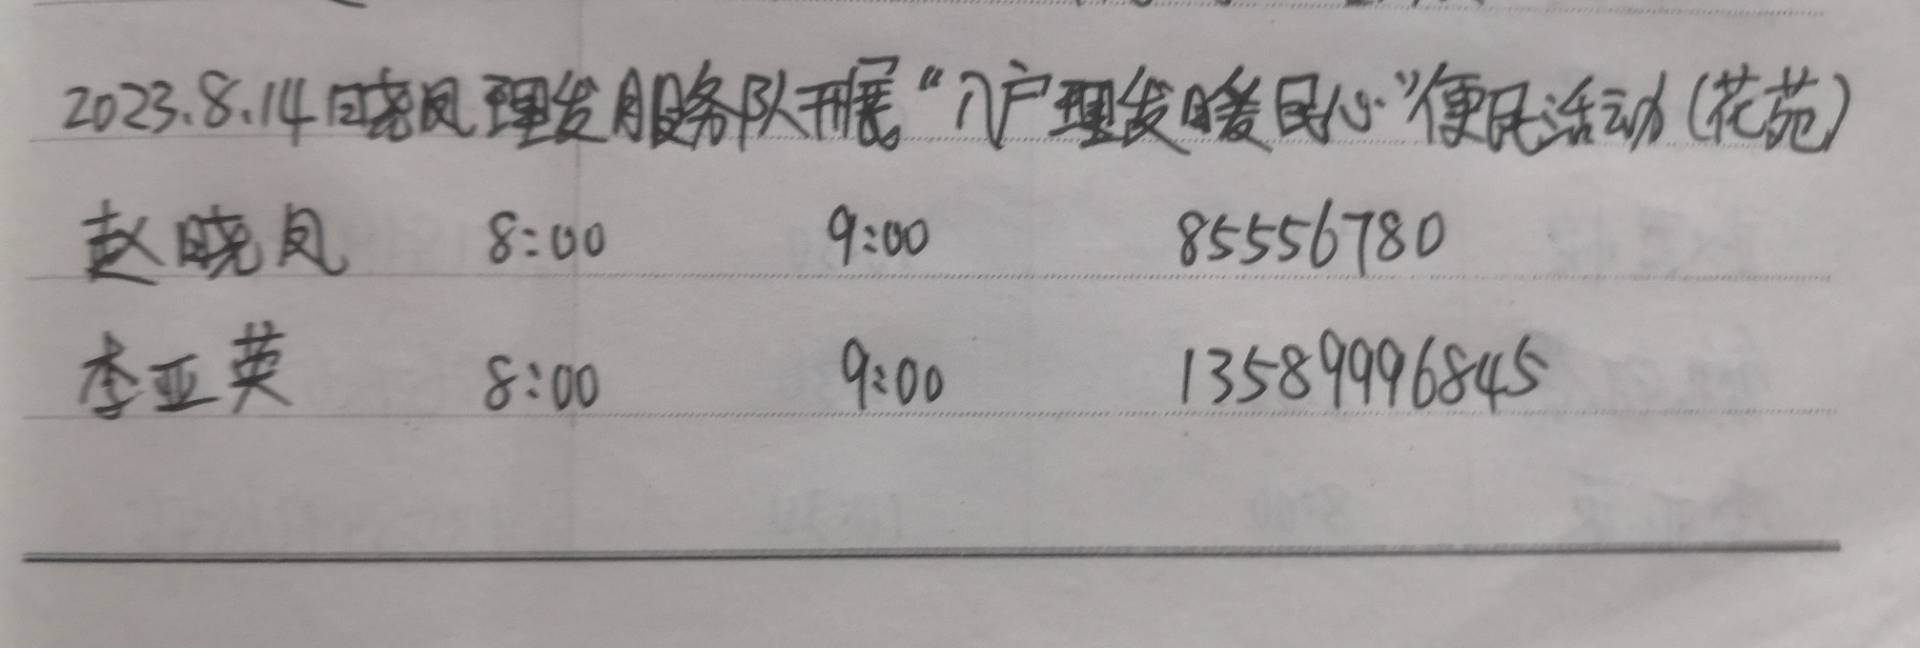 2023.8.14日晓凤理发服务队开展“入户理发暖民心”便民活动(花苑)
赵晓凤 8:00 9:00 85556780
李亚英 8:00 9:00 13589996845